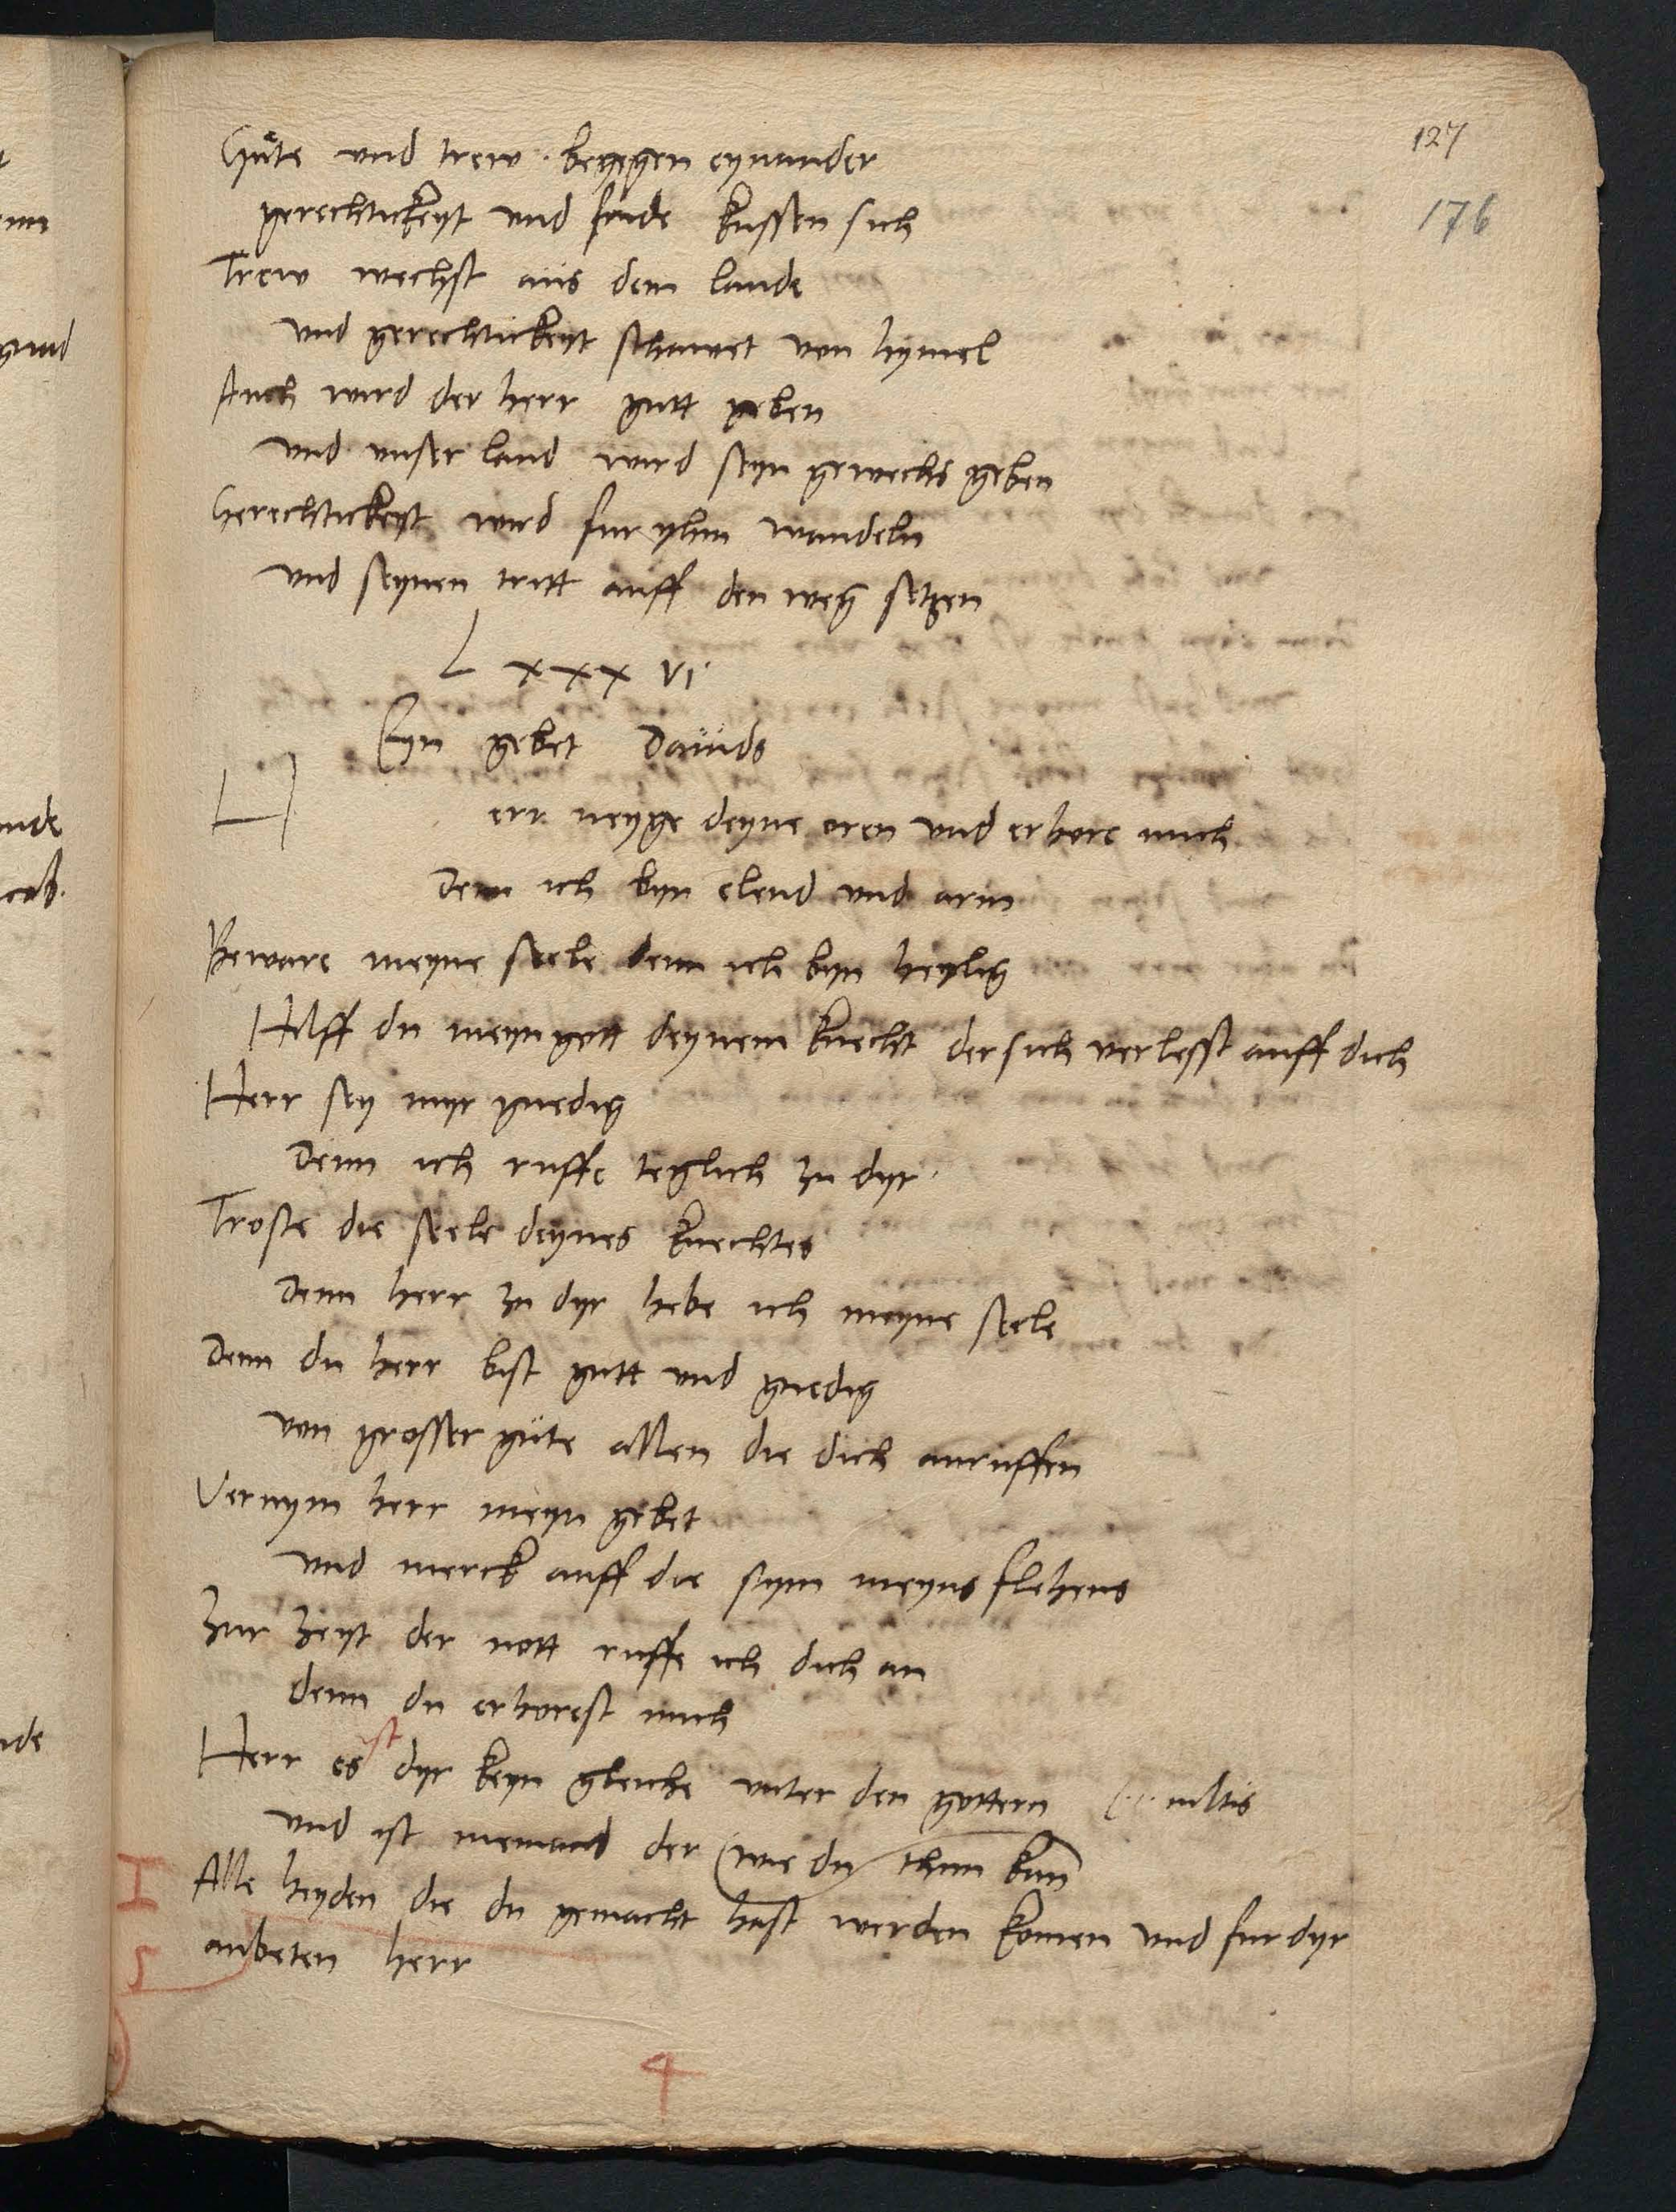 127
176
Gute und trew begegen eynander
gerechtickeyt und fride kussen sich
Trew wechst aus dem lande
und gerechtickeyt schawet von hymel
Auch wird der herr gutt geben
und unser land wird seyn gewechs geben
Gerechtickeyt wird fur yhm wandeln
und seynen tritt auff den weg setzen
L xxx vi.
Eyn gebet Dauids
H err neyge deyne oren und erhore mich
Denn ich byn elend und arm
Beware meyne seele denn ich byn heylig
Hilff du meyn gott deynem knecht der sich verlesst auff dich
Herr sey myr gnedig
Denn ich ruffe teglich zu dyr.
Troste die seele deynes knechtes
Denn herr zu dyr hebe ich meyne seele
Denn du herr bist gutt und gnedig
von grosser güte allen die dich anruffen
Vernym herr meyn gebet
und merck auff die stym meyns flehens
Zur zeyt der nott ruffe ich dich an
denn du erhorest mich
Herr es ist dyr keyn gleiche unter den gottern
und ist niemand der wie du thun kan
Alle heyden die du gemacht hast werden komen und fur dyr
anbeten herr
4